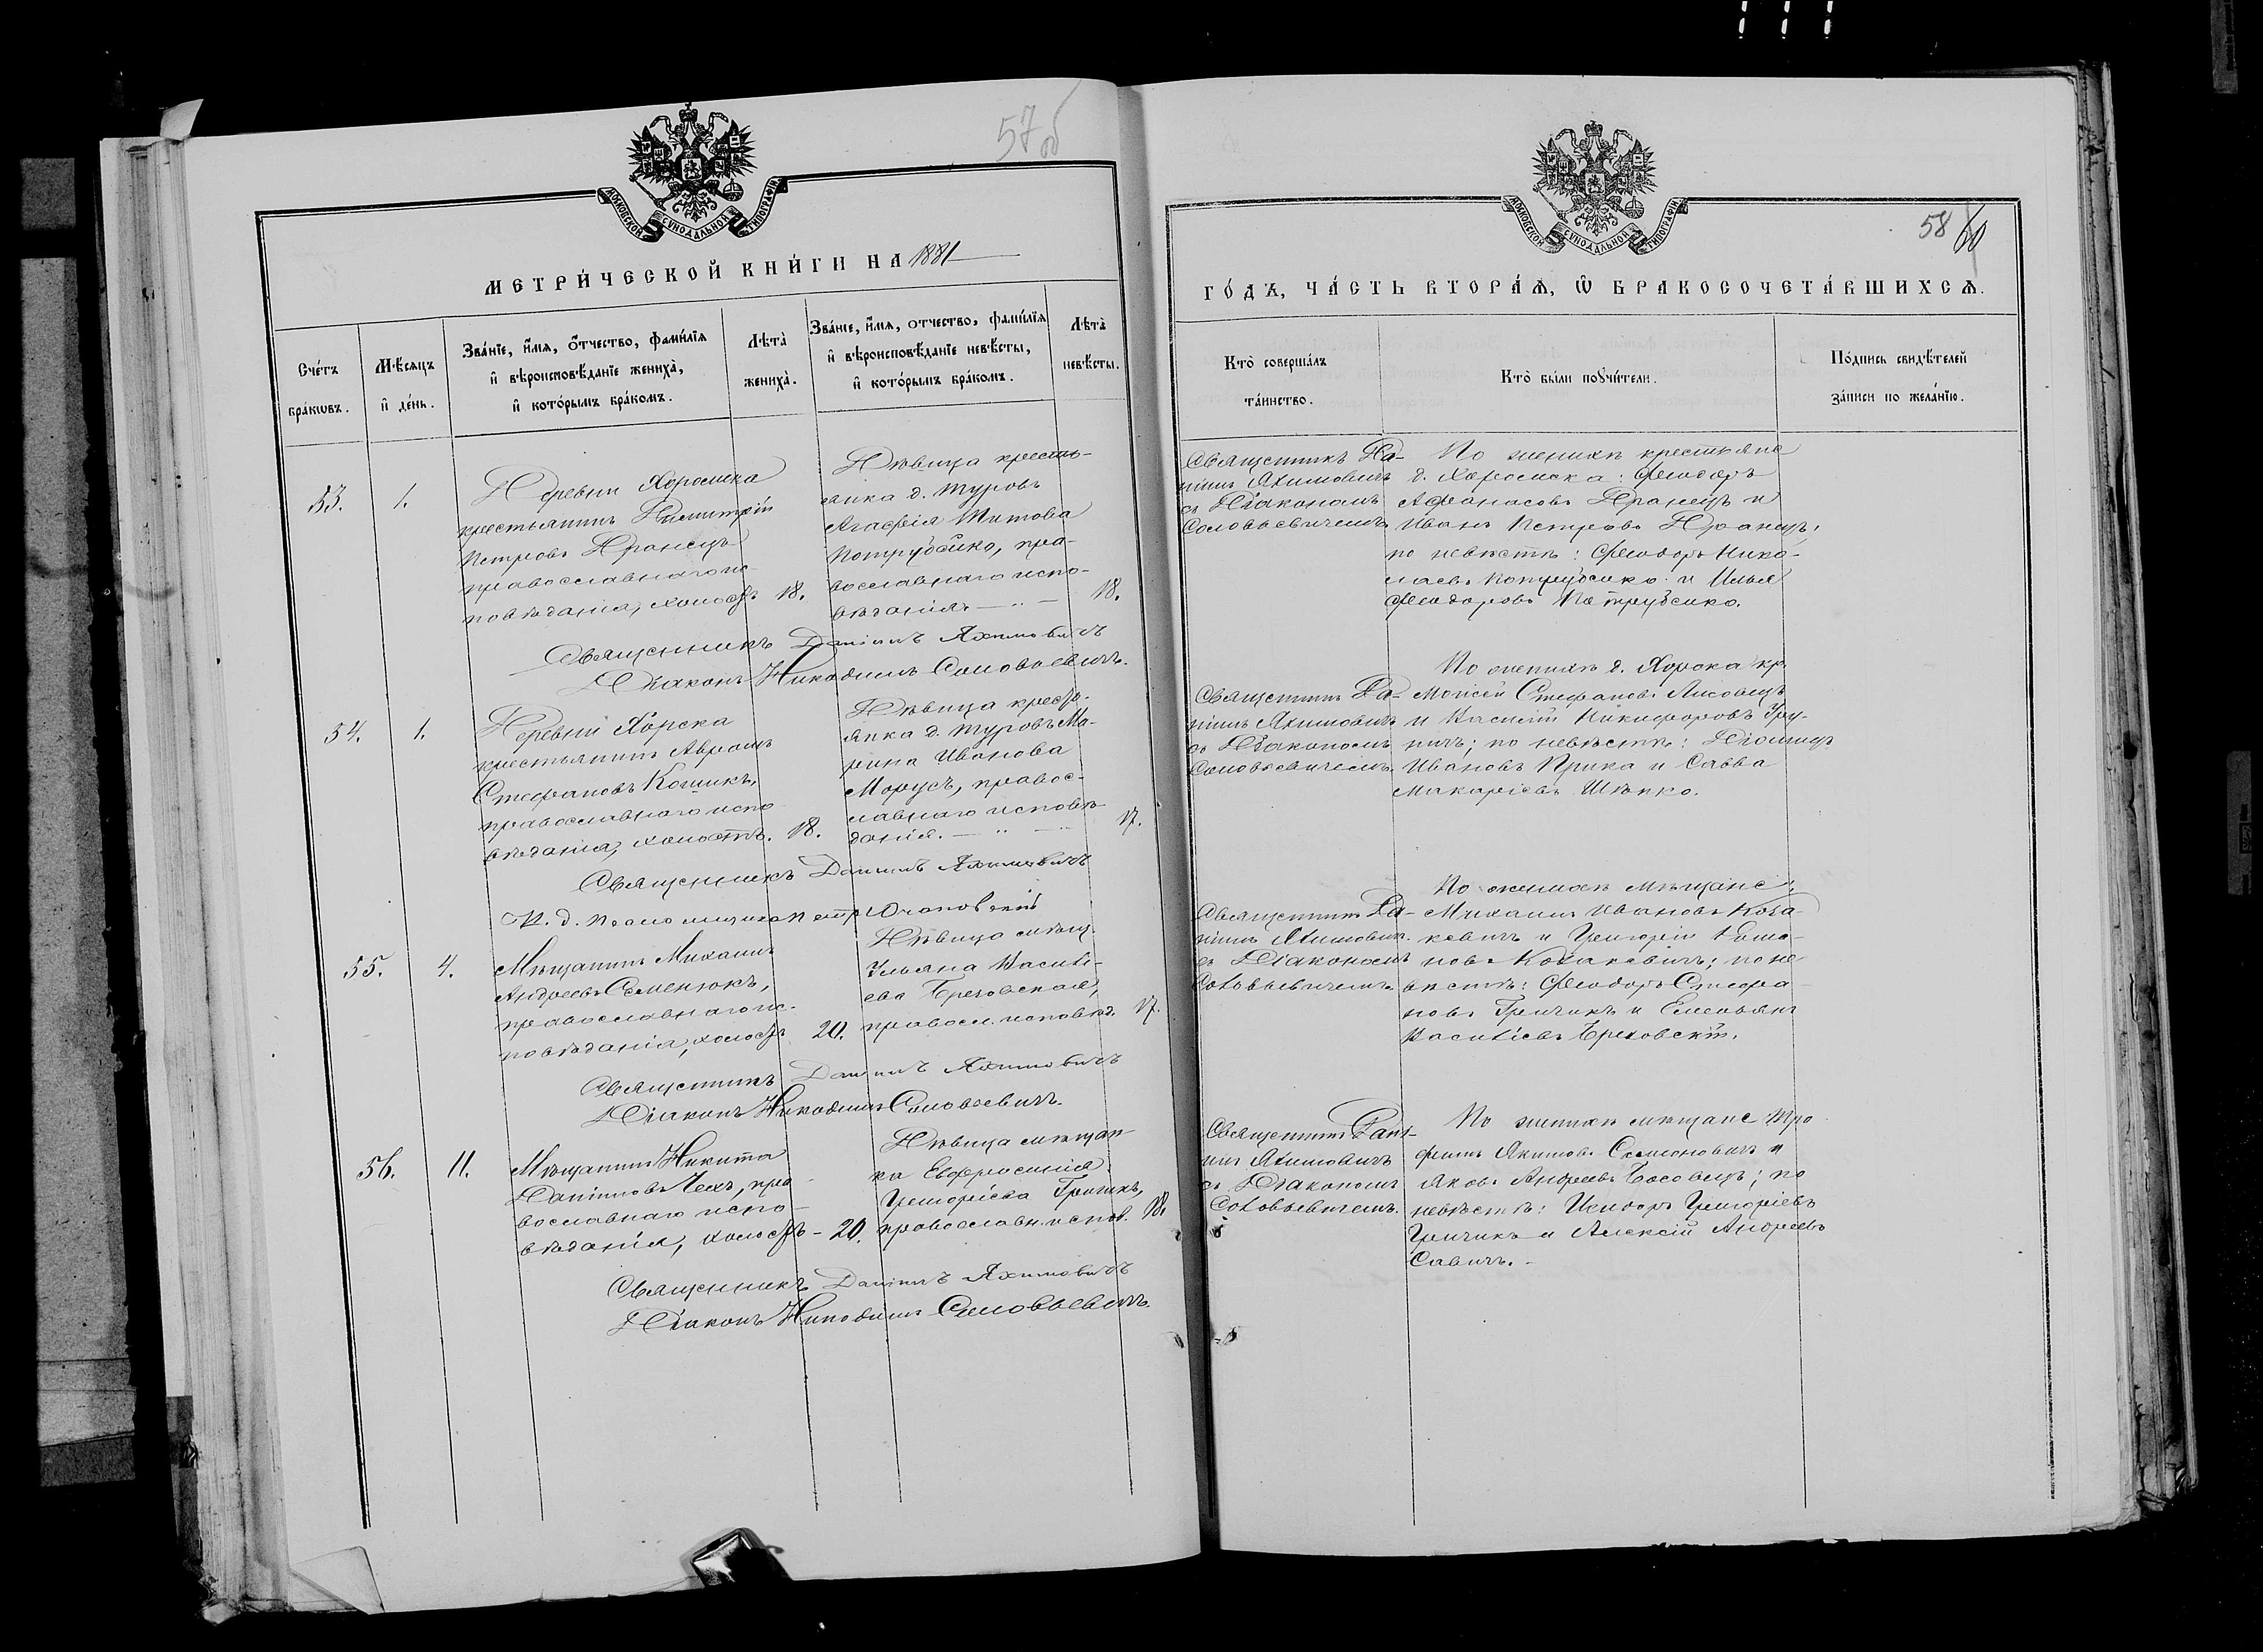 57 об
МОСКОВСКОЙ СУНОДАЛЬНОЙ ТИПОГРАФІИ
МЕТРИ́ЧЕСКОЙ КНИ́ГИ НА 1881
Сче́тъ бра́кѡвъ.
Мѣ́сяцъ и҆ де́нь.
Зва́нїе, и҆́мѧ, ѻ҆́тчество, фами́лїѧ
и҆ вѣроисповѣ́данїе жениха̀,
и҆ кото́рымъ бра́комъ.
Лѣта̀
жениха̀.
Зва́нїе, и҆́мѧ, ѻ҆́тчество, фами́лїѧ
и҆ вѣроисповѣ́данїе невѣ́сты,
и҆ кото́рымъ бра́комъ.
Лѣта̀
невѣ́сты.
53.
1.
Деревни Хоромска
крестьянинъ Димитрій
Петровъ Дранецъ
православнаго ис-
повѣданія, холостъ
18.
Дѣвица кресть-
янка д. Туровъ
Агафія Титова
Потрубейко, пра-
вославнаго испо-
вѣданія.
18.
Священникъ Даніилъ Яхимовичъ
Діаконъ Никодимъ Соловьевичъ.
54.
1.
Деревни Хорска
крестьянинъ Авраамъ
Стефановъ Кошикъ,
православнаго испо-
вѣданія, холостъ.
18.
Дѣвица кресть-
янка д. Туровъ Ма-
рина Иванова
Морусъ, правос-
лавнаго исповѣ-
данія.
17.
Священникъ Даніилъ Яхимовичъ
И. д. Псаломщика Петръ
55.
4.
Мѣщанинъ Михаилъ
Андреевъ Семенюкъ,
православнаго ис-
повѣданія, холостъ
20.
Дѣвица мѣщ.
Ульяна Василі-
ева Бреховская,
правосл. исповѣд.
17.
Священникъ Даніилъ Яхимовичъ
Діаконъ Никодимъ Соловьевичъ.
56.
11.
Мѣщанинъ Никита
Даніиловъ Лехъ, пра-
вославнаго испо-
вѣданія, холостъ -
20.
Дѣвица мѣщан-
ка Евфросинія
Григоріева Гричикъ,
православн. испов.
18.
Священникъ Даніилъ Яхимовичъ
Діаконъ Никодимъ Соловьевичъ.
58 60
МОСКОВСКОЙ СУНОДАЛЬНОЙ ТИПОГРАФІИ
ГО́ДЪ, ЧА́СТЬ ВТОРА́Ѧ, Ѽ БРАКОСОЧЕТА́ВШИХСѦ.
Кто̀ соверша́лъ
та́инство.
Кто̀ бы́ли порꙋчи́тели.
По́дпись свидѣ́телей
за́писи по жела́нїю.
Священникъ Да-
ніилъ Яхимовичъ
съ Діакономъ
Соловьевичемъ.
По женихѣ крестьяне
д. Хоромска: Феодоръ
Афанасовъ Дранецъ и
Иванъ Петровъ Дранецъ;
по невѣстѣ: Феодоръ Нико-
лаевъ Потрубейко и Илья
Феодоровъ Потрубейко.
Священникъ Да-
ніилъ Яхимовичъ
съ Діакономъ
Соловьевичемъ.
По женихѣ д. Хорска кр.
Моисей Стефановъ Лисовецъ
и Василій Никифоровъ Гру-
ничъ; по невѣстѣ: Діомидъ
Ивановъ Прика и Савва
Макаріевъ Шѣпко.
Священникъ Да-
ніилъ Яхимович.
съ Діакономъ
Соловьевичемъ.
По женихѣ мѣщане:
Михаилъ Ивановъ Коха-
кевичъ и Григорій Рома-
новъ Кохакевичъ; по не-
вѣстѣ: Феодоръ Стефа-
новъ Гричикъ и Емельянъ
Василіевъ Бреховскій.
Священникъ Дані-
илъ Яхимовичъ
съ Діакономъ
Соловьевичемъ.
По женихѣ мѣщане Тро-
фимъ Якимовъ Симоновичъ и
Яковъ Андреевъ Босовецъ; по
невѣстѣ: Исидоръ Григоріевъ
Гричикъ и Алексій Андреевъ
Савичъ.